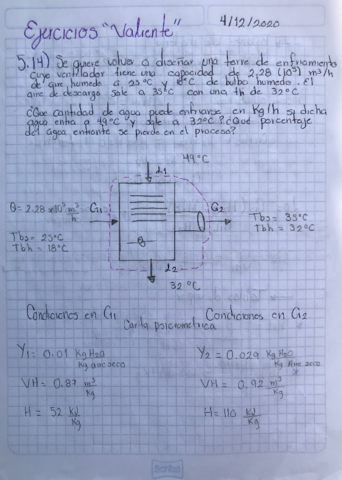 Ejercicios "Valiente"
4/12/2020
5.14) Se quiere volver a diseñar una torre de enfriamiento
cuyo ventilador tiene una capacidad de 2,28 (10⁵) m³/h
de aire humedo a 25°C y 18°C de bulbo humedo. El
aire de descarga sale a 35°C con una th de 32°C
¿Que cantidad de agua puede enfriarse en Kg/h si dicha
agua entra a 49°C y sale a 32°C? ¿Qué porcentaje
del agua entrante se pierde en el proceso?
49°C
L1
Tbs = 25°C
Tbh = 18°C
G1
G2
Tbs = 35°C
Tbh = 32°C
L2
32 °C
Condiciones en G1
Condiciones en G2
Carta psicrometrica
Y1 = 0.01 Kg H2O / Kg aire seco
Y2 = 0.029 Kg H2O / Kg Aire seco
VH = 0.87 m³/Kg
VH = 0.92 m³/Kg
H = 52 KJ/Kg
H = 110 KJ/Kg
Scribe